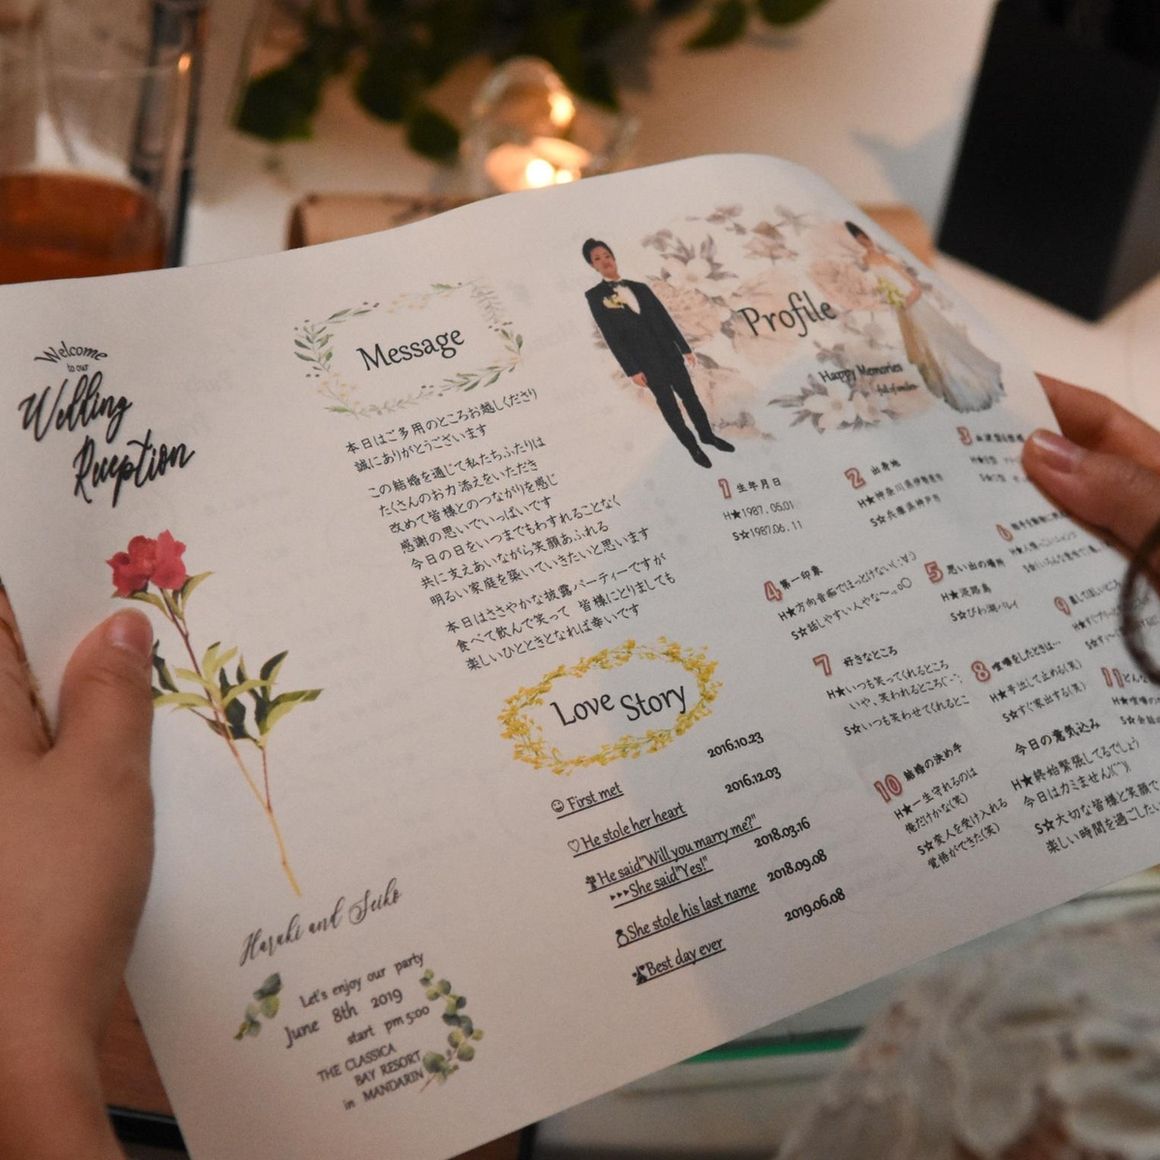 Welcome
to our
Wedding
Reception
Haruki and Seiko
Let's enjoy our party
June 8th 2019
start pm 5:00
THE CLASSICA
BAY RESORT
in MANDARIN
Message
本日はご多用のところお越しくださり
誠にありがとうございます
この結婚を通じて私たちふたりは
たくさんのお力添えをいただき
改めて皆様とのつながりを感じ
感謝の思いでいっぱいです
今日の日をいつまでもわすれることなく
共に支えあいながら笑顔あふれる
明るい家庭を築いていきたいと思います
本日はささやかな披露パーティーですが
食べて飲んで笑って 皆様にとりましても
楽しいひとときとなれば幸いです
Love Story
2016.10.23
First met
2016.12.03
He stole her heart
He said"Will you marry me?"
2018.03.16
▸▸▸She said"Yes!"
2018.09.08
She stole his last name
2019.06.08
Best day ever
Profile
Happy Memories
1 生年月日
H★1987.05.01
S☆1987.06.11
2 出身地
H★神奈川県伊勢原市
S☆兵庫県神戸市
3
4 第一印象
H★方向音痴でほっとけない
S☆話しやすい人やな〜。oO
5 思い出の場所
H★淡路島
S☆びわ湖バレイ
6
7 好きなところ
H★いつも笑ってくれるところ
いや、笑われるところ
S☆いつも笑わせてくれるとこ
8 喧嘩をしたときは…
H★手出して止める(笑)
S☆すぐ家出する(笑)
9
10 結婚の決め手
H★一生守れるのは
俺だけかな(笑)
S☆変人を受け入れる
覚悟ができた(笑)
11 どん
今日の意気込み
H★終始緊張してるでしょう
今日はカミません
S☆大切な皆様と笑顔で
楽しい時間を過ごしたい